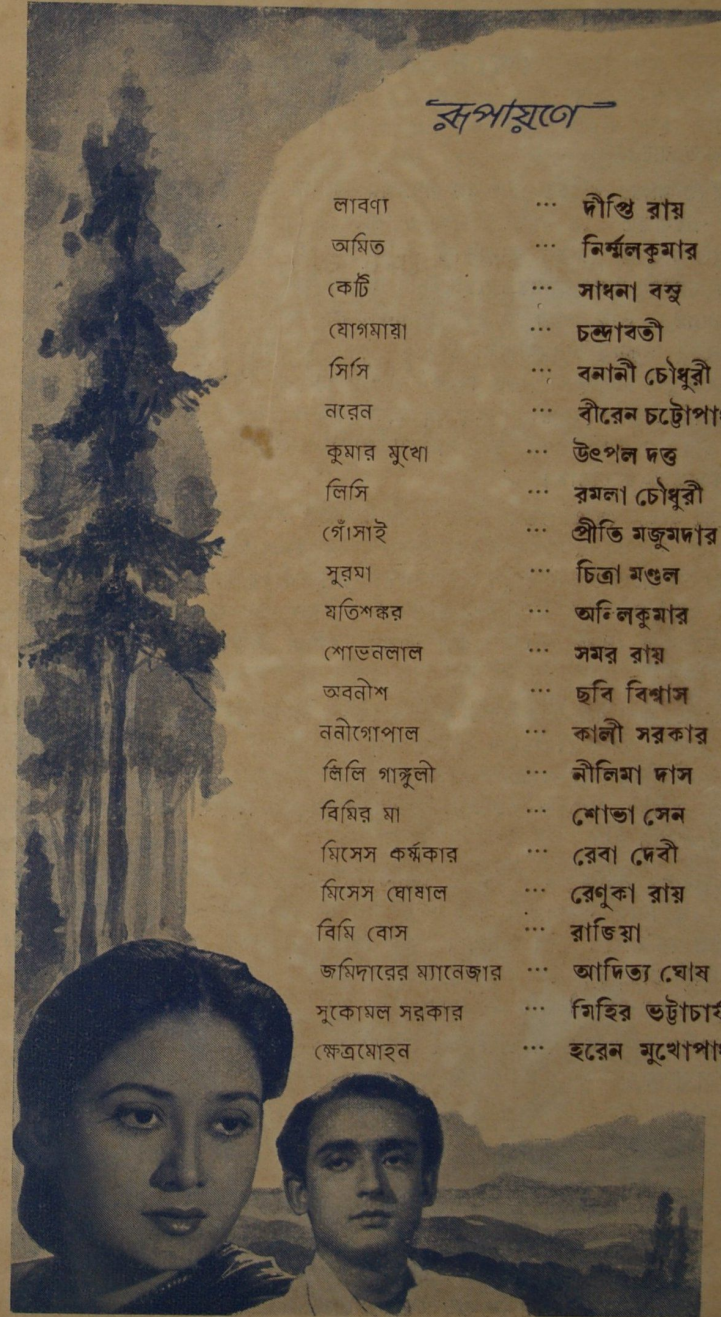 রূপায়ণে
লাবণ্য ... দীপ্তি রায়
অমিত ... নির্ম্মলকুমার
কেটি ... সাধনা বসু
যোগমায়া ... চন্দ্রাবতী
সিসি ... বনানী চৌধুরী
নরেন ... বীরেন চট্টোপা
কুমার মুখো ... উৎপল দত্ত
লিসি ... রমলা চৌধুরী
গোঁসাই ... প্রীতি মজুমদার
সুরমা ... চিত্রা মণ্ডল
যতিশঙ্কর ... অনিলকুমার
শোভনলাল ... সমর রায়
অবনীশ ... ছবি বিশ্বাস
ননীগোপাল ... কালী সরকার
লিলি গাঙ্গুলী ... নীলিমা দাস
বিমির মা ... শোভা সেন
মিসেস কর্ম্মকার ... রেবা দেবী
মিসেস ঘোষাল ... রেণুকা রায়
বিমি বোস ... রাজিয়া
জমিদারের ম্যানেজার ... আদিত্য ঘোষ
সুকোমল সরকার ... মিহির ভট্টাচা
ক্ষেত্রমোহন ... হরেন মুখোপা